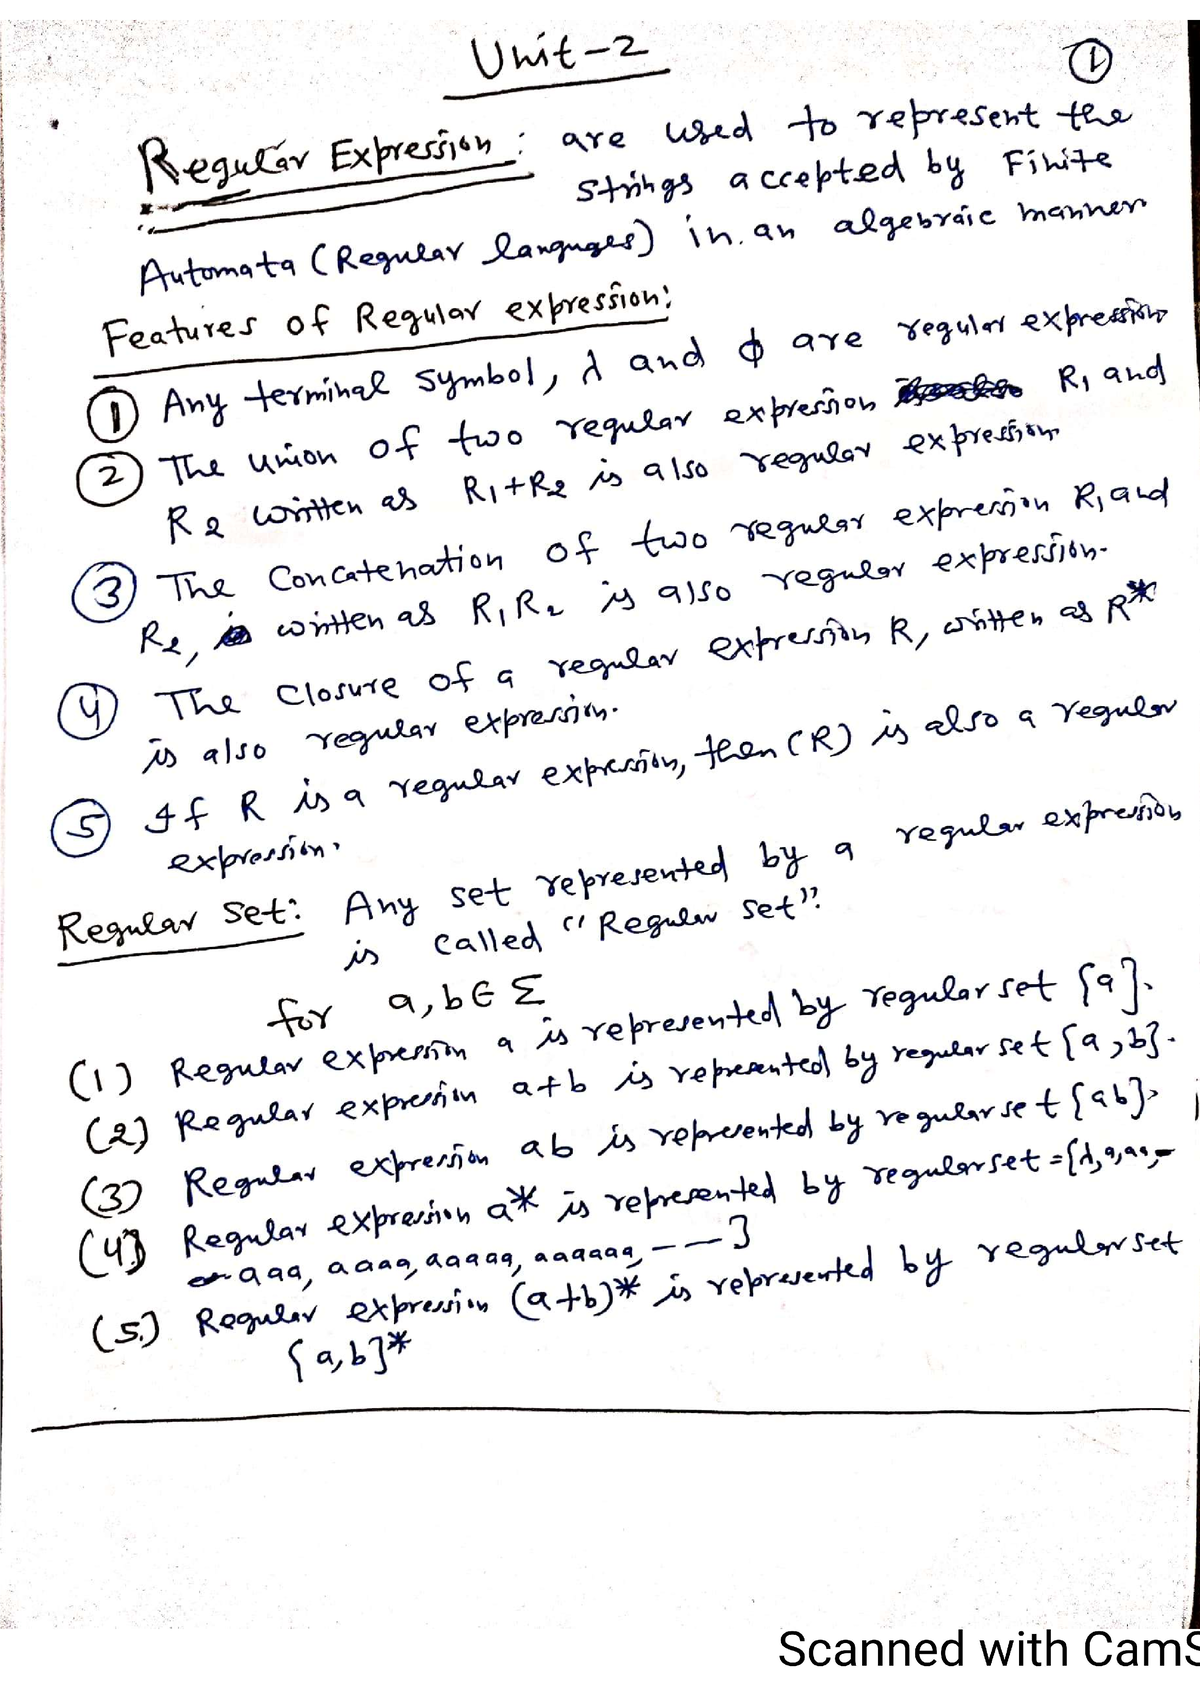 Unit-2
1
Regular Expression : are used to represent the
strings accepted by Finite
Automata (Regular languges) in. an algebraic manner
Features of Regular expression:
1 Any terminal symbol, λ and ϕ are regular expression
2 The union of two regular expression R1 and
R2 written as R1+R2 is also regular expression
3 The Concatenation of two regular expression R1 and
R2, written as R1R2 is also regular expression.
4 The Closure of a regular expression R, written as R*
is also regular expression.
5 If R is a regular expression, then (R) is also a regular
expression.
Regular set: Any set represented by a regular expression
is called "Regular set".
for a, b ∈ Σ
(1) Regular expression a is represented by regular set {a}.
(2) Regular expression a+b is represented by regular set {a,b}.
(3) Regular expression ab is represented by regular set {ab}.
(4) Regular expression a* is represented by regular set = {λ,a,aa,-
aaa, aaaa, aaaaa, aaaaaa, - - - }
(5.) Regular expression (a+b)* is represented by regular set
{a,b}*
Scanned with CamS